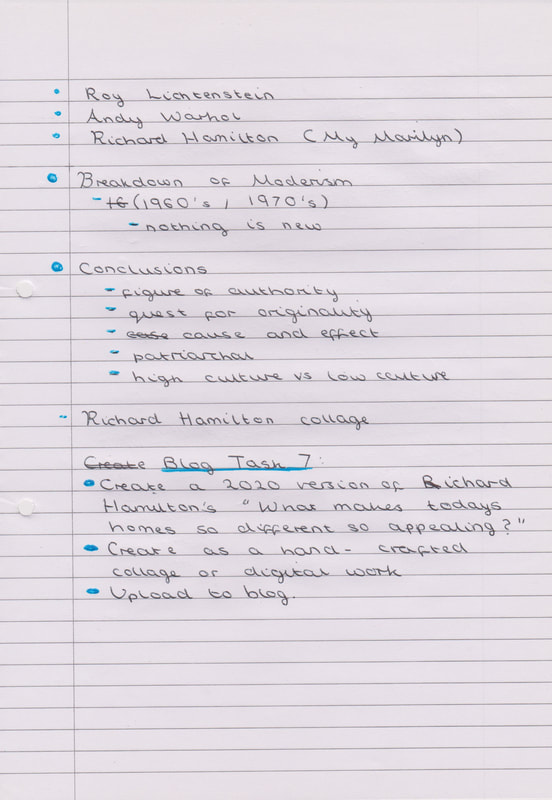 • Roy Lichtenstein
• Andy Warhol
• Richard Hamilton (My Marilyn)
• Breakdown of Moderism
- 16 (1960's, 1970's)
- nothing is new
• Conclusions
- figure of authority
- quest for originality
- case cause and effect
- patriarchal
- high culture vs low culture
- Richard Hamilton collage
Create Blog Task 7:
• Create a 2020 version of Richard
Hamilton's "What makes todays
homes so different so appealing?"
• Create as a hand-crafted
collage or digital work
• Upload to blog.